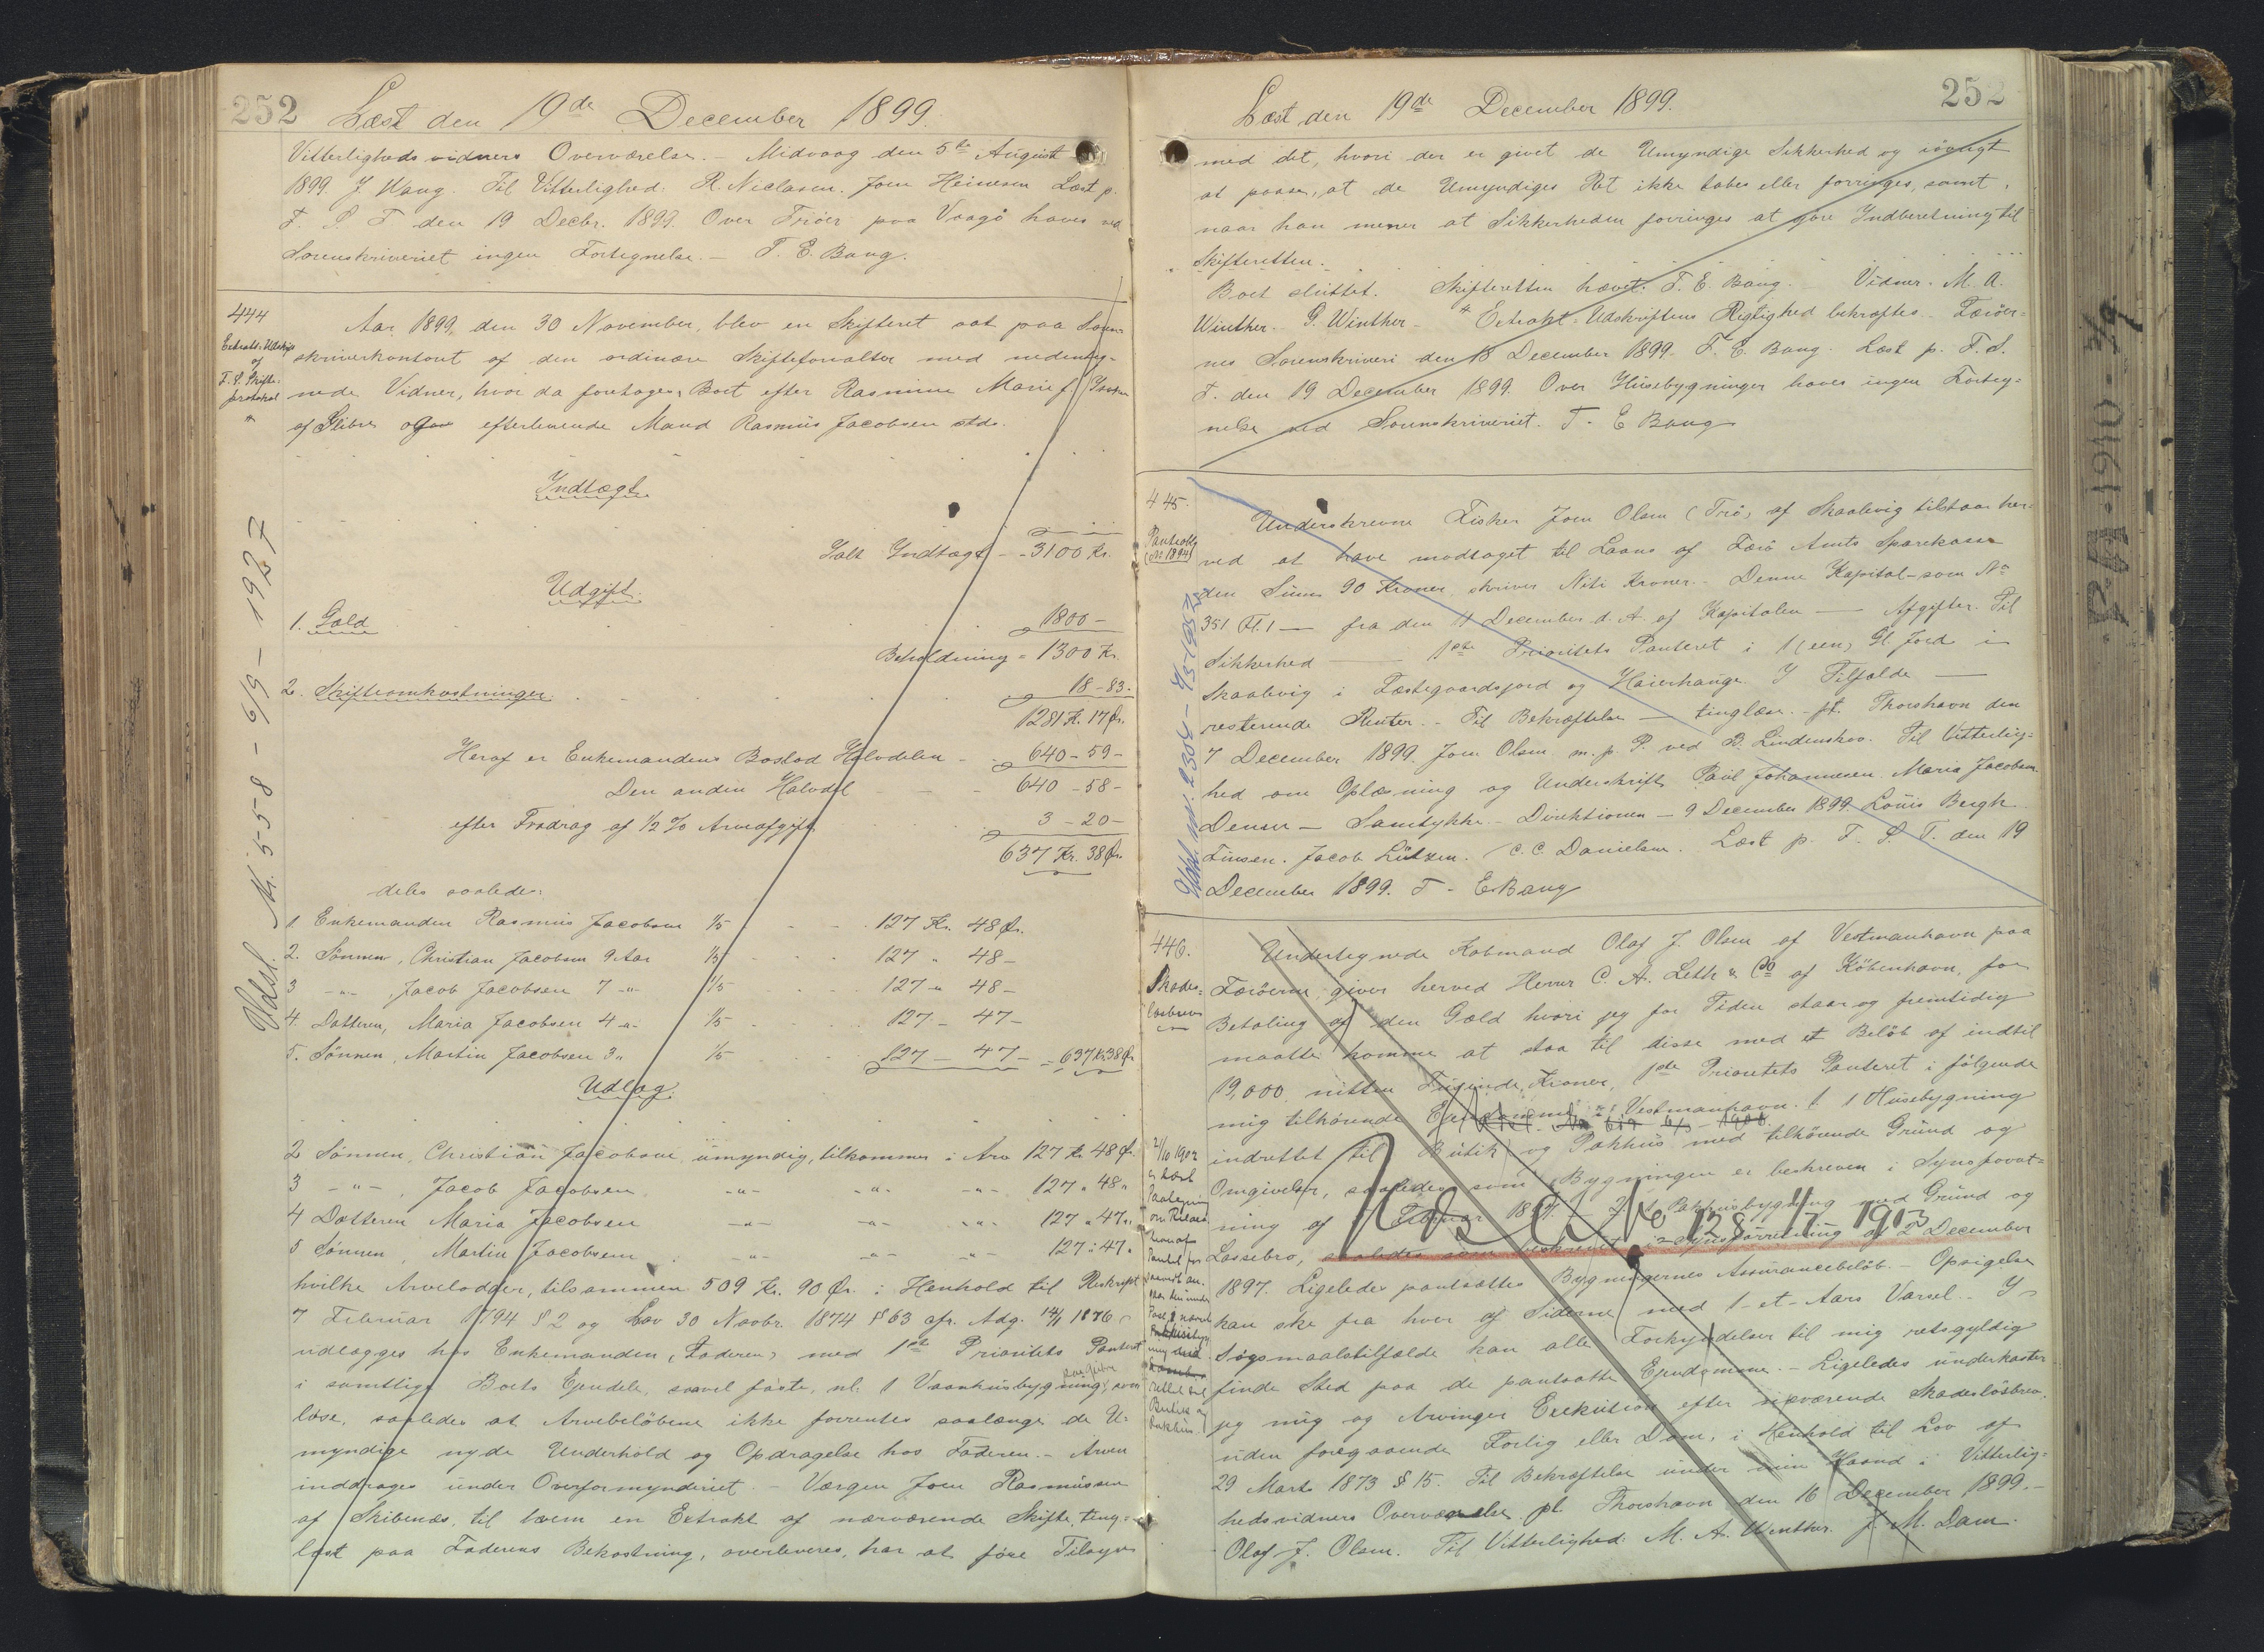 252
Læst den 19de December 1899.
Vitterlighedsvidners Overværelse. - Midvaag den 5te August
1899. J. Waag. Til Vitterlighed: R. Niclasen. Joen Heinesen Læst p.
F. S. T. den 19 Decbr. 1899. Over Tröer paa Vaagö haves ved
Sorenskriveriet ingen Fortegnelse. - T. E. Bang.
444
Extrakt-Udskrift
af
F. S. Skifte-
protokol
Aar 1899, den 30 November, blev en Skifteret sat paa Soren-
skriverkontoret af den ordinære Skifteforvalter med underteg-
nede Vidner, hvor da foretoges Boet efter Rasmine Marie f.
af Glibre og efterlevende Mand Rasmus Jacobsen stds.
Indtægt
Ialt Indtægt - 3100 Kr.
Udgift.
1. Gæld 1800 -
Beholdning = 1300 Kr.
2. Skifteomkostninger 18-83.
1281 Kr. 17 Ør.
Heraf er Enkemandens Boslod Halvdelen - 640-59-
Den anden Halvdel - - 640-58-
efter Fradrag af 1/2 % Arveafgift 3-20-
637 Kr. 38 Ør.
deles saaledes:
1. Enkemanden Rasmus Jacobsen 1/5 - - 127 Kr. 48 Ør.
2. Sönnen, Christian Jacobsen 9 Aar 1/5 - - 127 " 48 -
3 -"- , Jacob Jacobsen 7 -"- 1/5 127 " 48 -
4. Datteren, Maria Jacobsen 4 -"- 1/5 127 - 47 -
5. Sönnen, Martin Jacobsen 3 " 1/5 127 - 47 - = 637 Kr 38 Ør
Udlæg.
2 Sönnen, Christian Jacobsen, umyndig, tilkommer i Arv 127 Kr. 48 Ør.
3 -"- , Jacob Jacobsen -"- -"- -"- 127 " 48 "
4 Datteren Maria Jacobsen -"- -"- -"- 127 " 47 "
5 Sönnen, Martin Jacobsen -"- -"- -"- 127 " 47 "
hvilke Arvelodder, tilsammen 509 Kr. 90 Ør. i Henhold til Reskript
7 Februar 1794 § 2 og Lov 30 Novbr. 1874 § 63 cfr. Adg. 14/1 1876
udlægges hos Enkemanden (Faderen) med 1ste Prioritets Panteret
i samtlige Boets Ejendele, saavel faste, nl. 1 Vaanhusbygning, som
löse, saaledes at Arvebelöbene ikke forrentes saalænge de U-
myndige nyde Underhold og Opdragelse hos Faderen. - Arven
inddrages under Overformynderiet. - Værgen Joen Rasmussen
af Skibenæs, til hvem en Extrakt af nærværende Skifte, ting-
læst paa Faderens Bekostning, overleveres, har at före Tilsyn
Udsl. Nr. 558 - 6/9 - 1927
252
Læst den 19de December 1899.
med det, hvori der er givet de Umyndige Sikkerhed og iövrigt
at paase, at de Umyndiges Ret ikke tabes eller forringes, samt,
naar han mener at Sikkerheden forringes at göre Indberetning til
Skifteretten.
Boet sluttet. Skifteretten hævet. T. E. Bang. - Vidner. M. A.
Winther. G. Winther - Extrakt-Udskriftens Rigtighed bekræftes. Færöer-
nes Sorenskriveri den 18 December 1899. T. E. Bang. Læst p. F. S.
T. den 19 December 1899. Over Husebygninger haves ingen Forteg-
nelse ved Sorenskriveriet. T. E Bang
445.
Panteobl.
Underskrevne Fisker Joen Olsen (Trö) af Skaalevig tilstaar her-
ved at have modtaget til Laans af Færö Amts Sparekasse
den Sum 90 Kroner, skriver Niti Kroner. - Denne Kapital - som No
351 - fra den 11 December d. A. af Kapitalen - Afgifter. Til
Sikkerhed - 1ste Prioritets Panteret i 1 (een) Gl. Jord i
Skaalevig i Fæstegaardsjord og Höierhauge. I Tilfælde -
resterende Renter. - Til Bekræftelse - tinglæses. pt. Thorshavn den
7 December 1899. Joen Olsen m. p. P. ved B. Lindenskov. Til Vitterlig-
hed om Oplæsning og Underskrift Paul Johannesen. Maria Jacobsen.
Denne - Samtykke - Direktionen - 9 December 1899 Louis Bergh
Finsen. Jacob Lützen. C. C. Danielsen. Læst p. F. S. T. den 19
December 1899. T. E Bang
446.
Skades-
lösbrev
Undertegnede Købmand Olaf J. Olsen af Vestmanhavn paa
Færöerne giver herved Herrer C. A. Leth & Co af Köbenhavn, for
Betaling af den Gæld hvori jeg for Tiden staar og fremtidig
maatte komme at staa til disse med et Belöb af indtil
19,000 nitten Tusinde Kroner, 1ste Prioritets Panteret i fölgende
mig tilhørende Ejendomme i Vestmanhavn. 1. 1 Husebygning
indrettet til Butik og Pakhus med tilhörende Grund og
Omgivelser, saaledes som Bygningen er beskreven i Synsforret-
ning af Februar 1897. - 2. 1 Pakhusbygning med Grund og
Lassebro, saaledes som beskrevet i Synsforretning af 2 December
1897. Ligeledes pantsættes Bygningernes Assurancebelöb. - Opsigelse
kan ske fra hver af Siderne med 1-et-Aars Varsel. - I
Søgsmaalstilfælde kan alle Forkyndelser til mig retsgyldig
finde Sted paa de pantsatte Ejendomme. - Ligeledes underkaster
jeg mig og Arvinger Exekution efter nærværende Skadeslösbrev
uden foregaaende Forlig eller Dom, i Henhold til Lov af
29 Marts 1873 § 15. Til Bekræftelse under min Haand i Vitterlig-
hedsvidners Overværelse. pt. Thorshavn den 16 December 1899. -
Olaf J. Olsen. Til Vitterlighed: M. A. Winther. J. M. Dam.
Udsl. No 128 1903
2/10 1902
er læst
Paategning
om Relaxa-
Butik og
Pakhus.